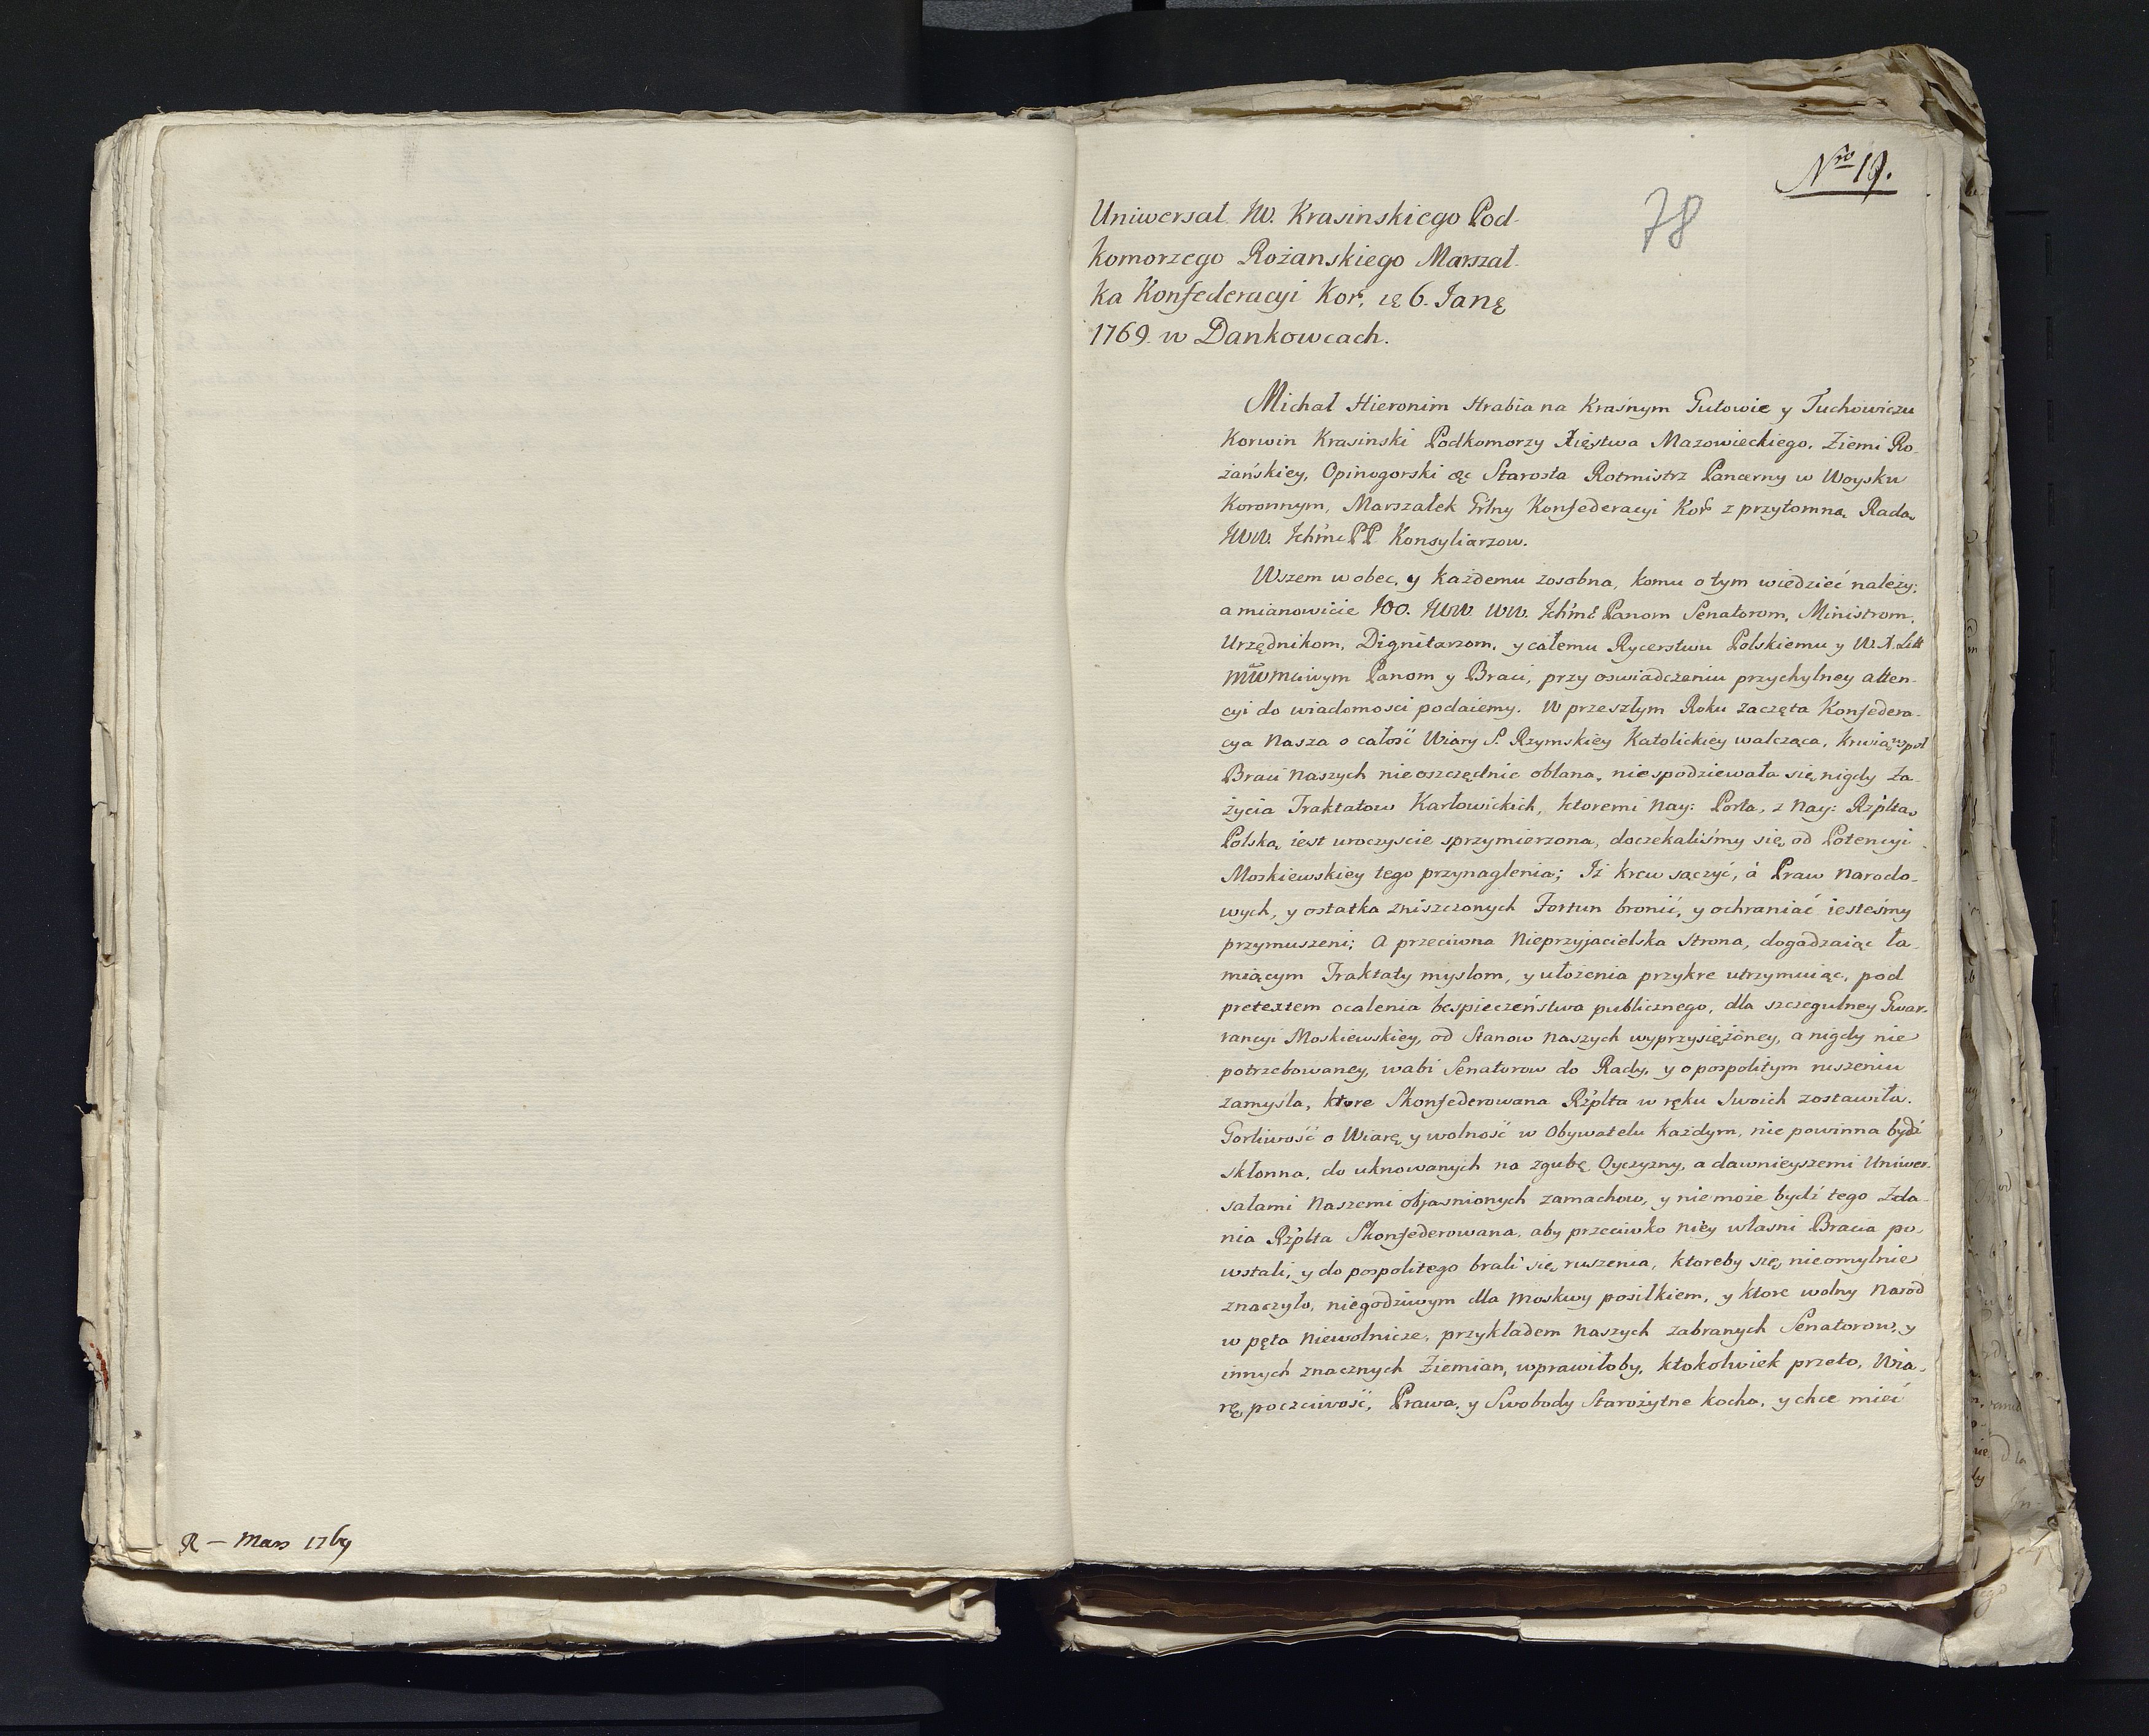 R – Mars 1769
Nro 19.
78
Uniwersał JW. Krasinskiego Pod-
komorzego Rożanskiego Marszał-
ka Konfederacyi Kor. 6. Janę
1769. w Dankowcach.
Michał Hieronim Hrabia na Kraśnym Gutowie y Tuchowiczu
Korwin Krasinski Podkomorzy Xięstwa Mazowieckiego, Ziemi Ro-
żańskiey, Opinogorski &c Starosta Rotmistrz Pancerny w Woysku
Koronnym, Marszałek Grlny Konfederacyi Kor z przytomną Radą
JWW. Ichmc PP Konsyliarzow.
Wszem wobec, y każdemu zosobna, komu o tym wiedzieć należy;
a mianowicie JOO. JWW WW. Ichmć Panom Senatorom, Ministrom,
Urzędnikom, Dignitarzom, y całemu Rycerstwu Polskiemu y W. X. Litt
Panom y Braci, przy oswiadczeniu przychylney atten-
cyi do wiadomosci podaiemy. W przeszłym Roku zaczęta Konfedera-
cya Nasza o całość Wiary S. Rzymskiey Katolickiey walcząca, krwią wspoł
Braci Naszych nieoszczędnie oblana, niespodziewała się nigdy za-
życia Traktatow Karłowickich, ktoremi Nay: Porta, z Nay: Rzpltą
Polską iest uroczyscie sprzymierzona, doczekaliśmy się od Potencyi
Moskiewskiey tego przynaglenia; Iż krew sączyć, á Praw Narodo-
wych, y ostatka zniszczonych Fortun bronić, y ochraniać iesteśmy
przymuszeni; A przeciwna Nieprzyjacielska Strona, dogadzaiąc ła-
miącym Traktaty myslom, y ułożenia przykre utrzymuiąc, pod
pretextem ocalenia bespieczeństwa publicznego, dla szczegulney Gwar-
rancyi Moskiewskiey, od Stanow Naszych wyprzysiężoney, a nigdy nie
potrzebowaney, wabi Senatorow do Rady, y o pospolitym ruszeniu
zamyśla, ktore Skonfederowana Rzplta w ręku Swoich zostawiła.
Gorliwość o Wiarę y wolność w Obywatelu każdym, nie powinna bydź
skłonna, do uknowanych na zgubę Oyczyzny, a dawnieyszemi Uniwer-
sałami Naszemi objasnionych zamachow, y niemoże bydź tego zda-
nia Rzplta Skonfederowana, aby przeciwko Niey własni Bracia po-
wstali, y do pospolitego brali się ruszenia, ktoreby się nieomylnie
znaczyło, niegodziwym dla Moskwy posiłkiem, y ktore wolny Narod
w pęta Niewolnicze, przykładem Naszych zabranych Senatorow, y
innych znacznych Ziemian, wprawiłoby, ktokolwiek przeto, Wia-
rę poczciwość, Prawa, y Swobody Starożytne kocha, y chce mieć